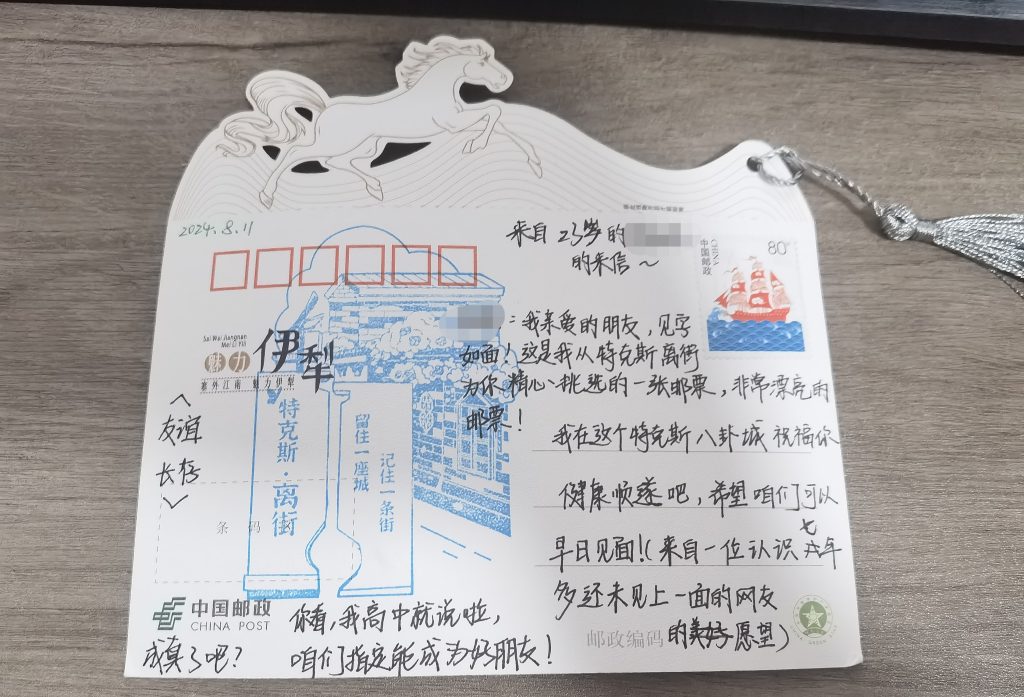 2024.8.11
来自23岁的
的来信~
80
CHINA
中国邮政
Sai Wai Jiangnan
Mei Li Yili
魅力
伊犁
塞外江南 魅力伊犁
：我亲爱的朋友，见字
如面！这是我从特克斯离街
为你精心挑选的一张邮票，非常漂亮的
邮票！
我在这个特克斯八卦城祝福你
健康顺遂吧，希望咱们可以
早日见面！(来自一位认识七年
多还未见上一面的网友
的愿望)
<友谊
长存>
特克斯·离街
留住一座城
记住一条街
条码
中国邮政
CHINA POST
邮政编码
你看，我高中就说啦，
咱们指定能成为好朋友！
成真了吧？